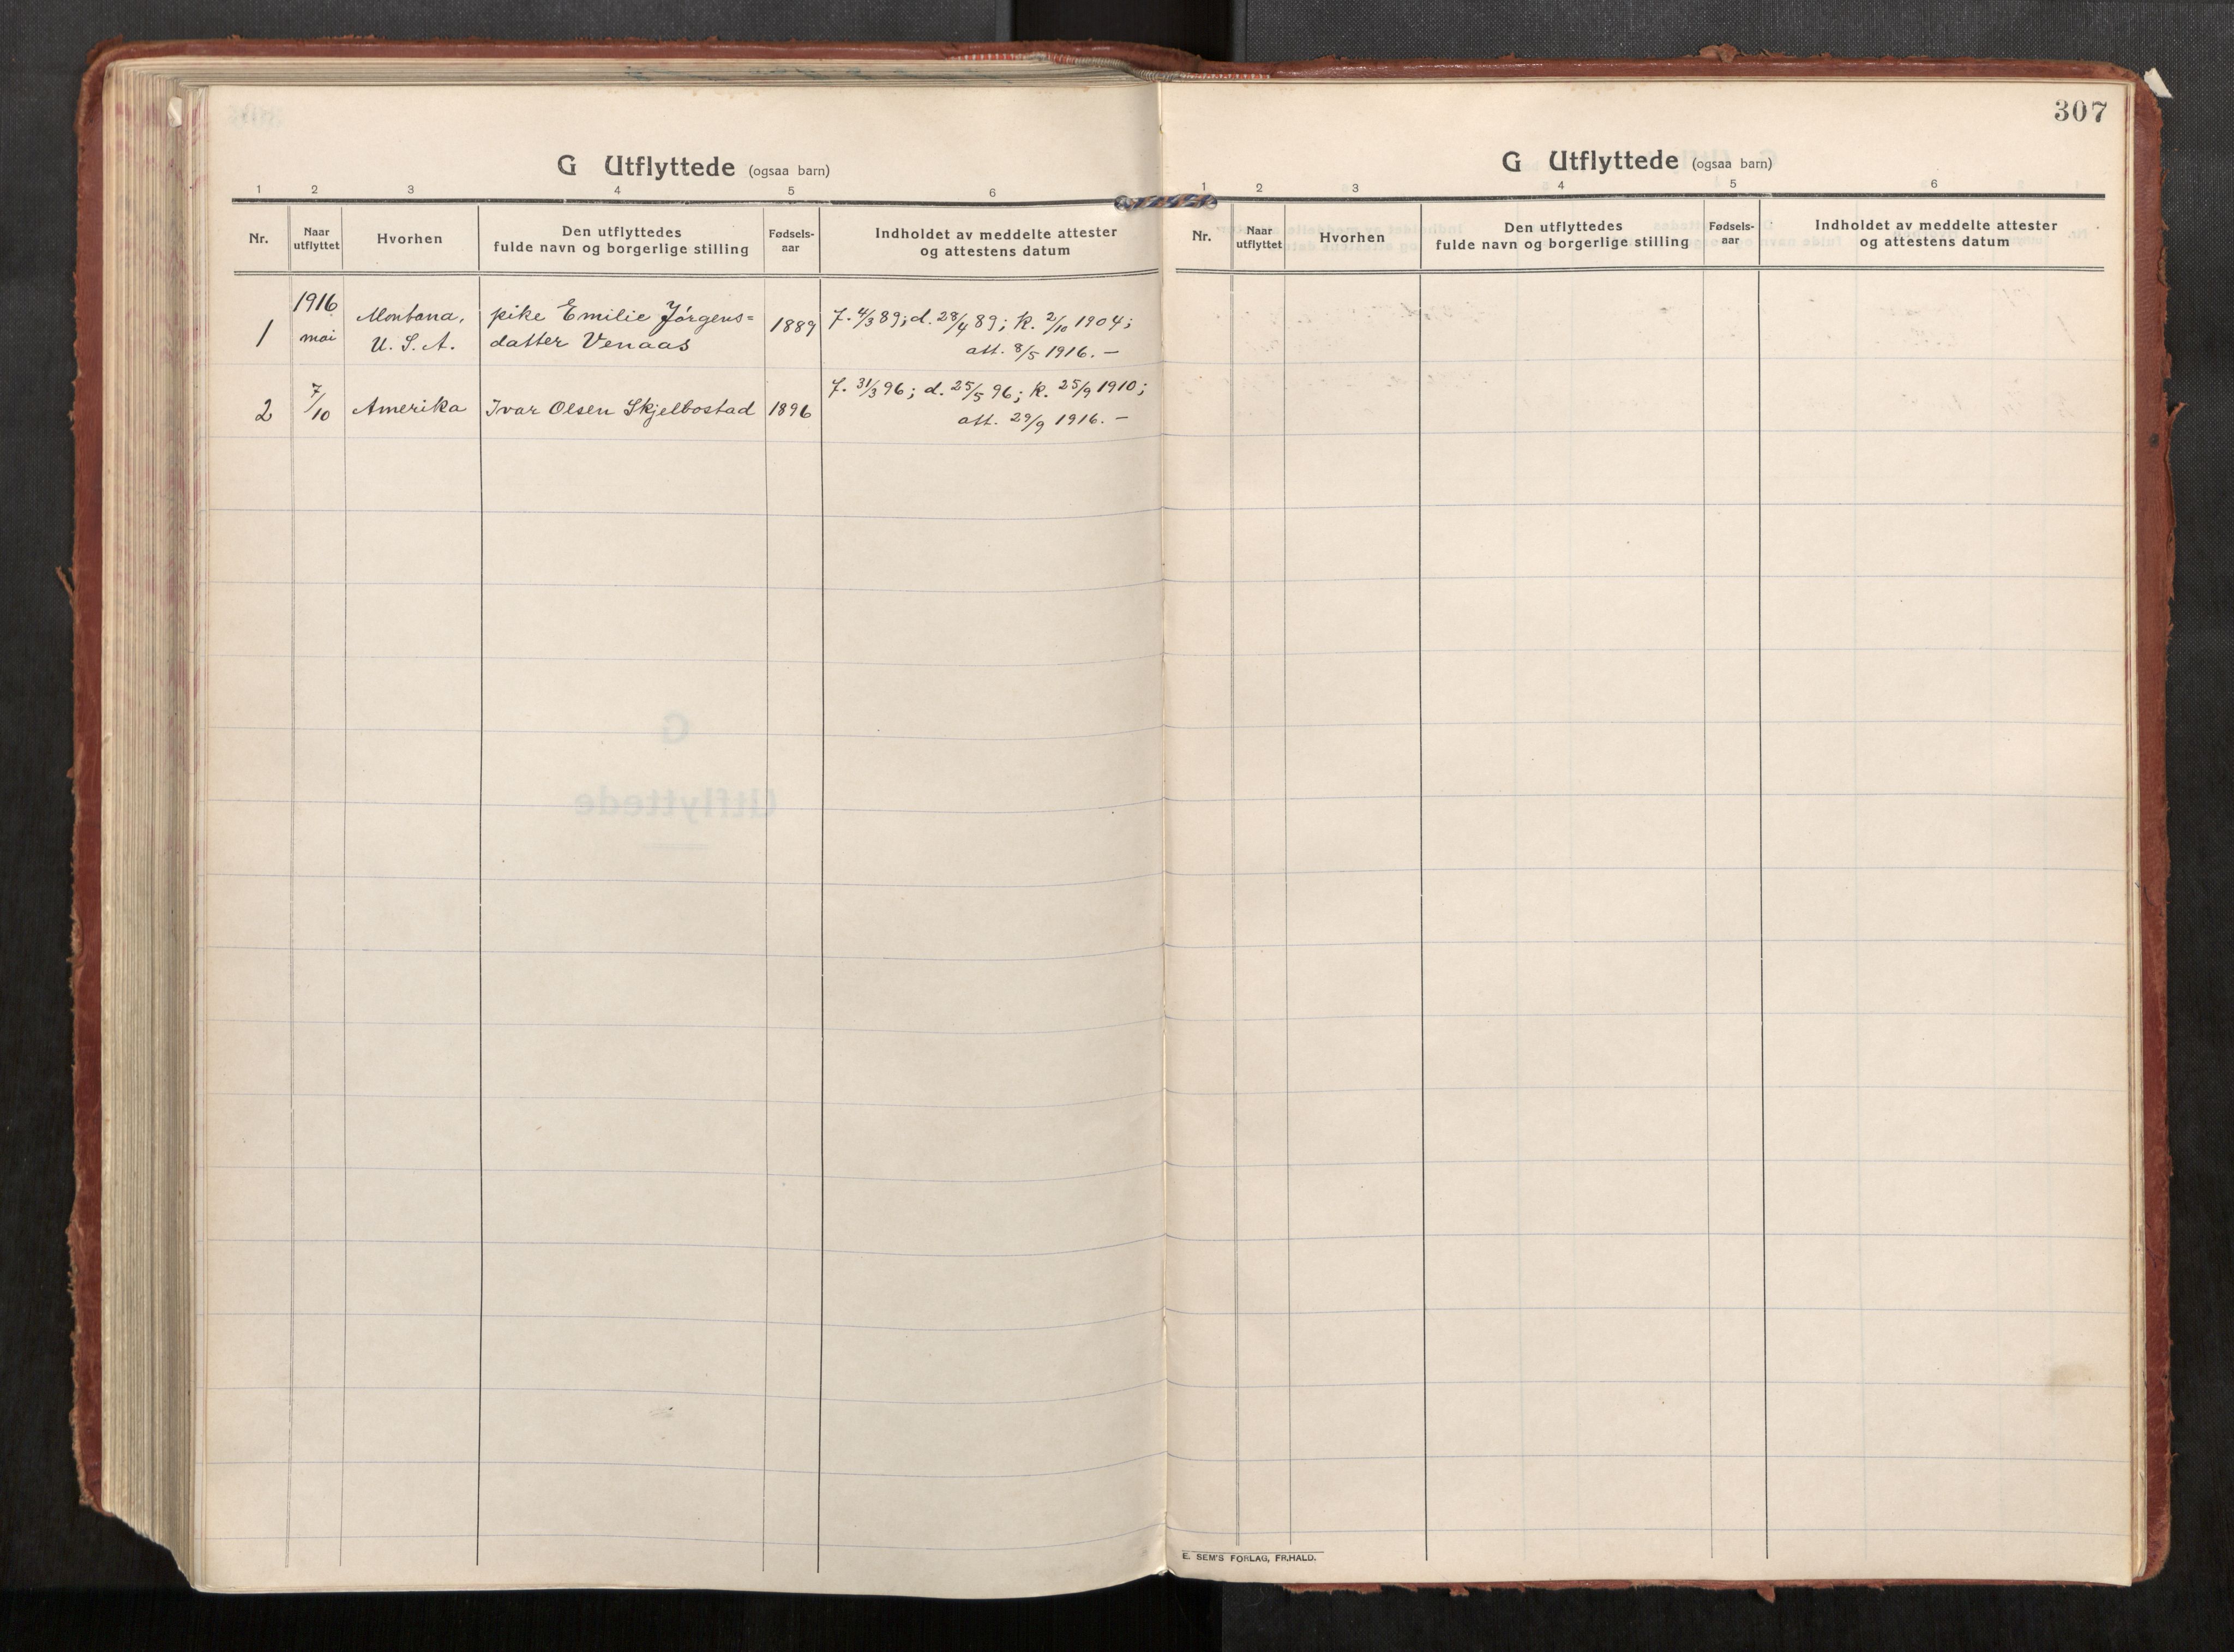 G Utflyttede (ogsaa barn)
1 2 3 4 5 6
Nr. Naar utflyttet Hvorhen Den utflyttedes fulde navn og borgerlige stilling Fødsels-aar Indholdet av meddelte attester og attestens datum
1916
1 mai Montana, U. S. A. pike Emilie Jørgens= 1889 f. 4/3 89; d. 28/4 89; k. 2/10 1904;
datter Venaas att. 8/5 1916. —
2 7/10 Amerika Ivar Olsen Skjelbostad 1896 f. 31/3 96; d. 25/5 96; k. 25/9 1910;
att. 29/9 1916. —
307
G Utflyttede (ogsaa barn)
1 2 3 4 5 6
Nr. Naar utflyttet Hvorhen Den utflyttedes fulde navn og borgerlige stilling Fødsels-aar Indholdet av meddelte attester og attestens datum
E. SEM'S FORLAG, FR.HALD.